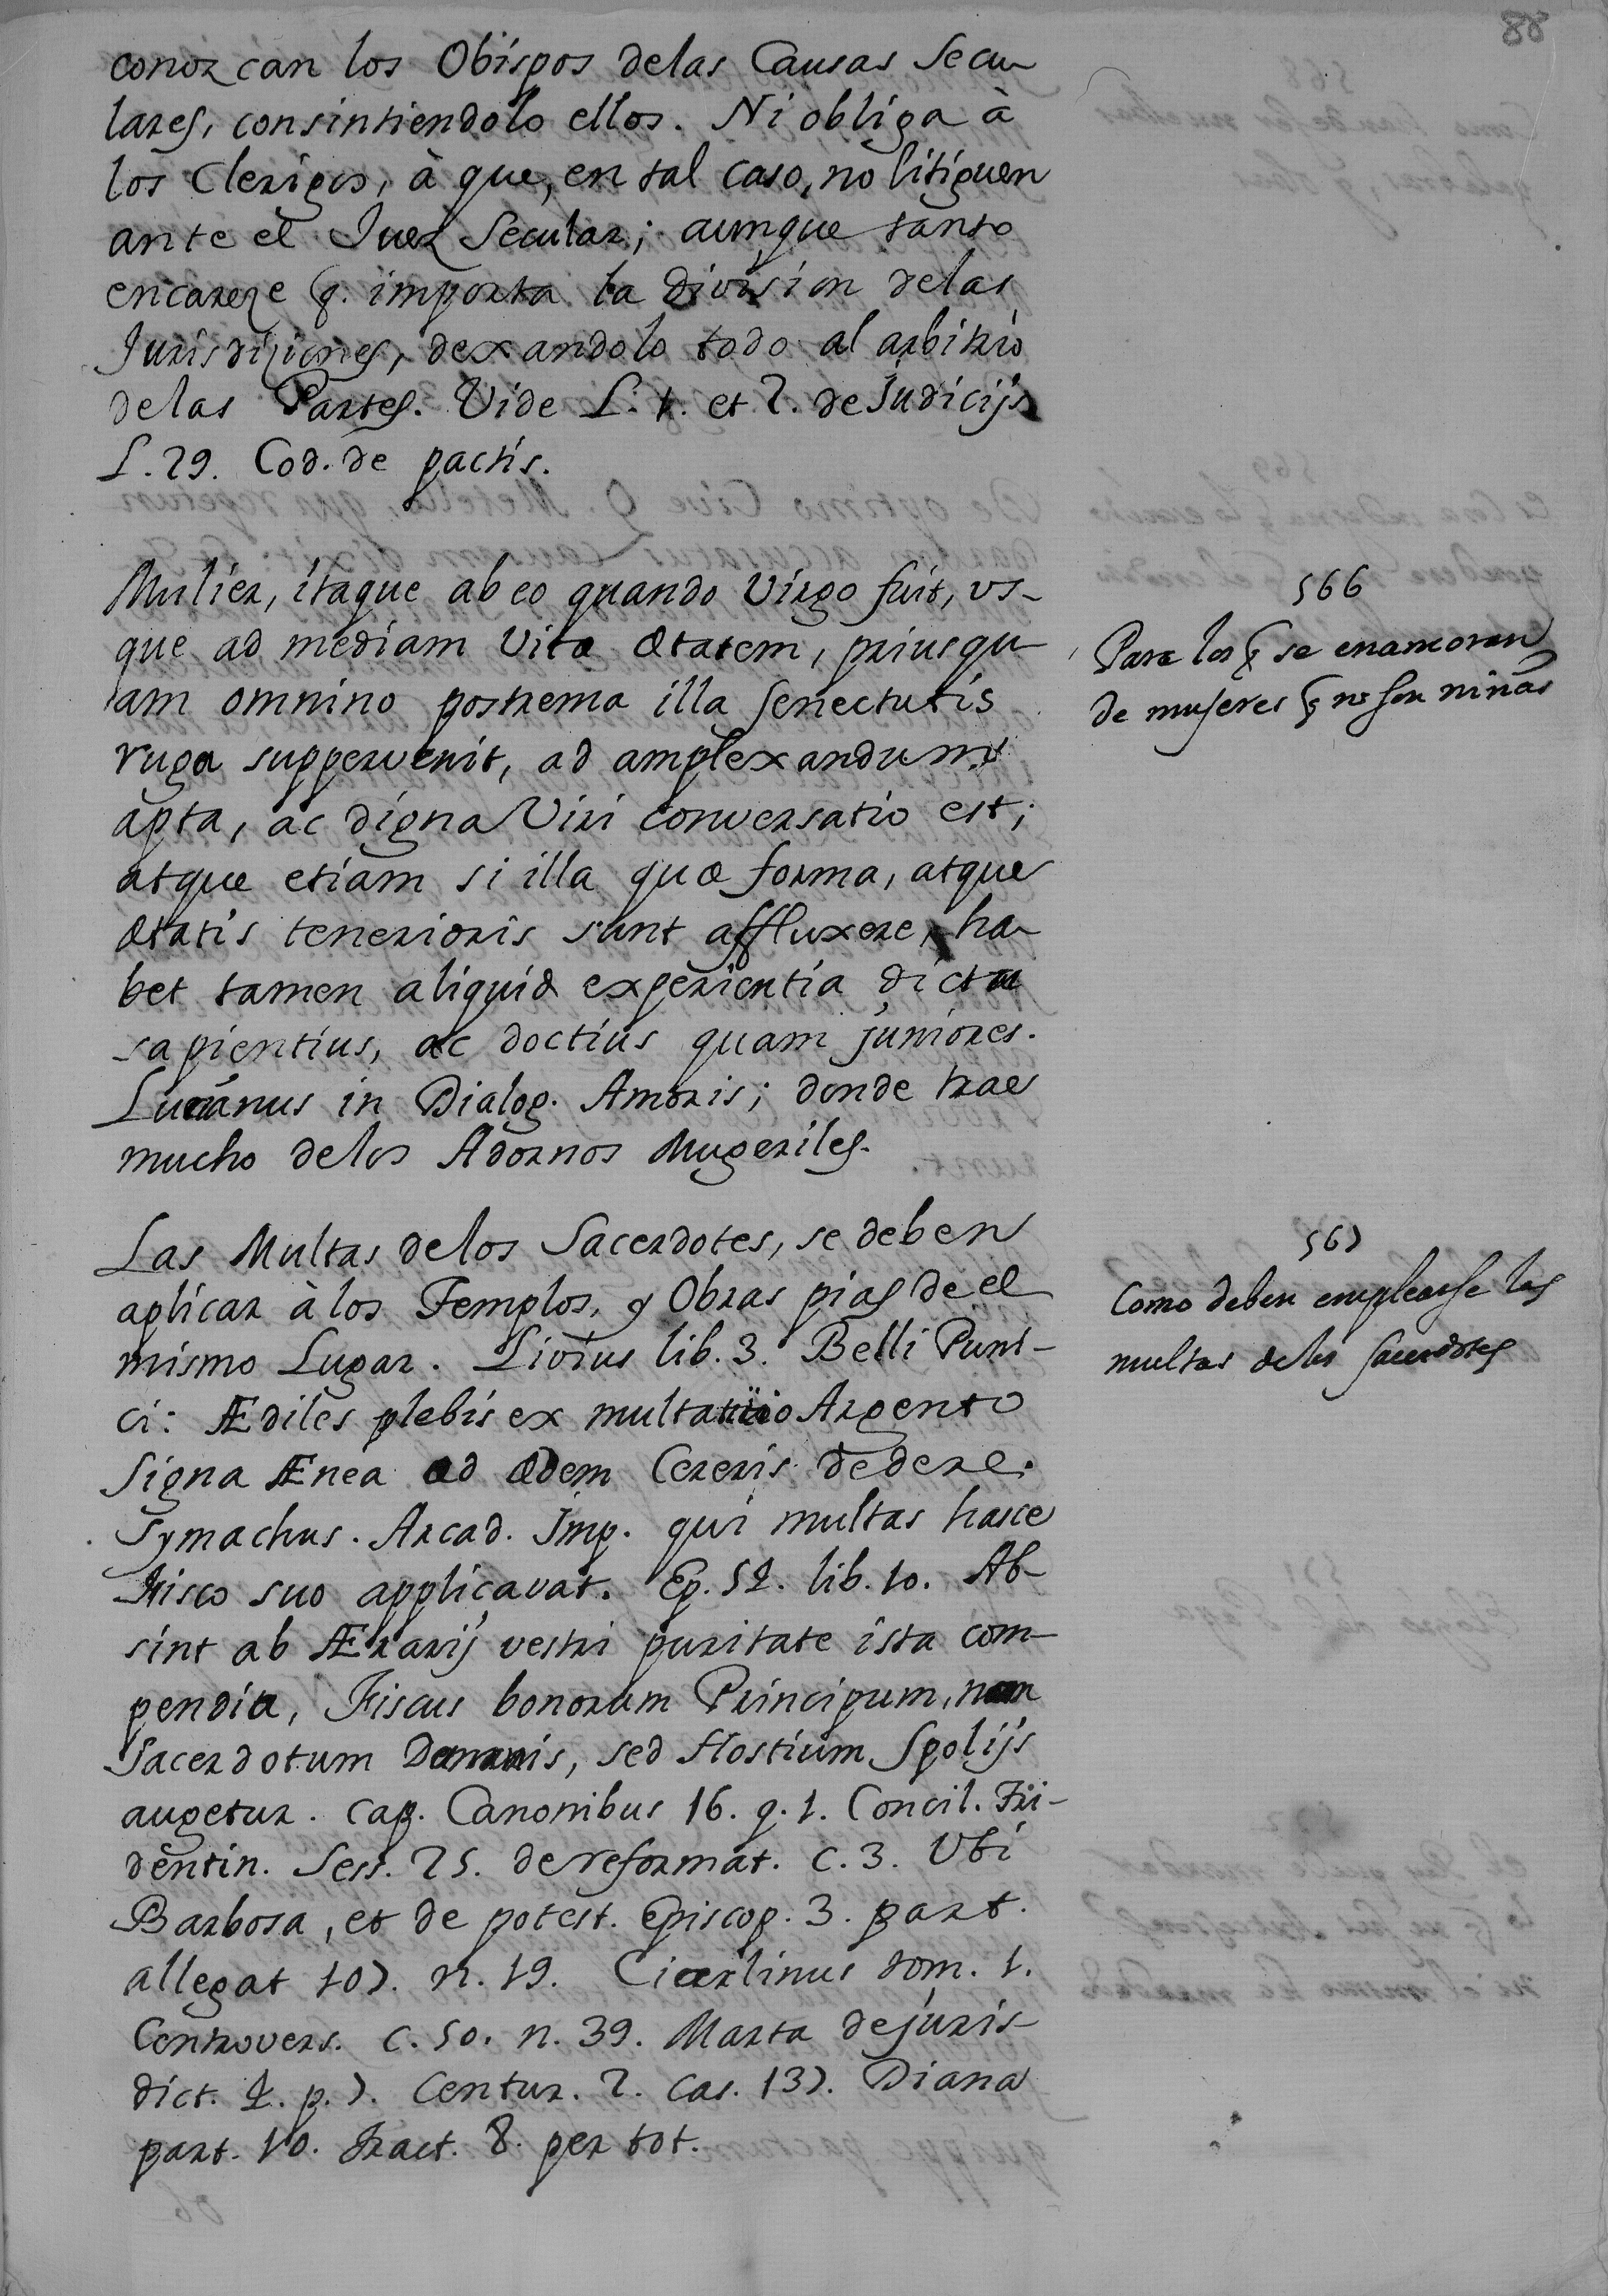 88
conozcan los Obispos delas Causas Secu
lares, consintiendolo ellos. Ni obliga à
los Clerigos, à que, en tal caso, no litiguen
ante el Juez Secular; aunque tanto
encareze q. importa la division delas
Jurisdiziones, dexandolo todo al arbitrio
delas Partes. Vide L. 1. et 2. de Judicijs
L. 29. Cod. de pactis.
Mulier, itaque ab eo quando Virgo fuit, us-
que ad mediam Vitæ ætatem, priusqu-
am omnino postrema illa senectutis
ruga suppervenit, ad amplexandum
apta, ac digna Viri conversatio est;
atque etiam si illa quæ forma, atque
ætatis tenerioris sunt affluxere, ha-
bet tamen aliquid experientia dictu
sapientius, ac doctius quam juniores.
Lucianus in Dialog. Amoris; donde trae
mucho delos Adornos Mugeriles.
566
Para los q se enamoran
de mujeres q no son niñas
Las Multas delos Sacerdotes, se deben
aplicar à los Templos, y Obras pias de el
mismo Lugar. Livius lib. 3. Belli Puni-
ci: Ædiles plebis ex multatitio Argento
Signa Ænea ad ædem Cereris dedere.
Symachus. Arcad. Imp. qui multas hasce
Fisco suo applicavat. Ep. 52. lib. 10. Ab-
sint ab Ærarij vestri puritate ista com-
pendia, Fiscus bonorum Principum, non
Sacerdotum Damnis, sed Hostium Spolijs
augetur. cap. Canonibus 16. q. 1. Concil. Tri-
dentin. Sess. 25. de reformat. c. 3. Ubi
Barbosa, et de potest. Episcop. 3. part.
allegat 107. n. 19. Ciarlinus tom. 1.
Controvers. c. 50. n. 39. Marta de juris-
dict. 2. p. 7. Centur. 2. Cas. 137. Diana
part. 10. tract. 8. per tot.
567
Como deben emplearse las
multas delos Sacerdotes